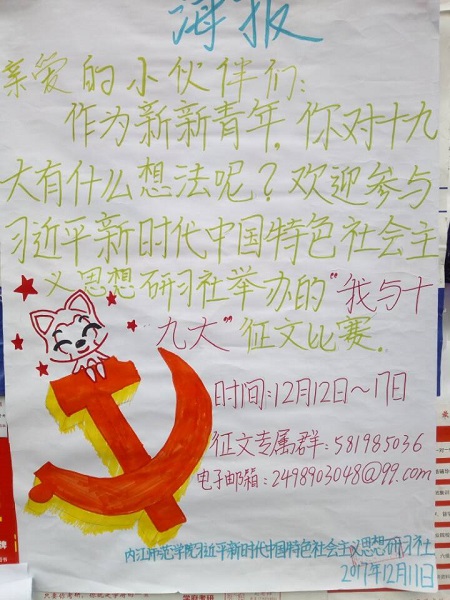 海报
亲爱的小伙伴们：
作为新新青年，你对十九
大有什么想法呢？欢迎参与
习近平新时代中国特色社会主
义思想研习社举办的“我与十
九大”征文比赛。
时间：12月12日～17日
征文专属群：581985036
电子邮箱：2498903048@99.com
内江师范学院习近平新时代中国特色社会主义思想研习社
2017年12月11日